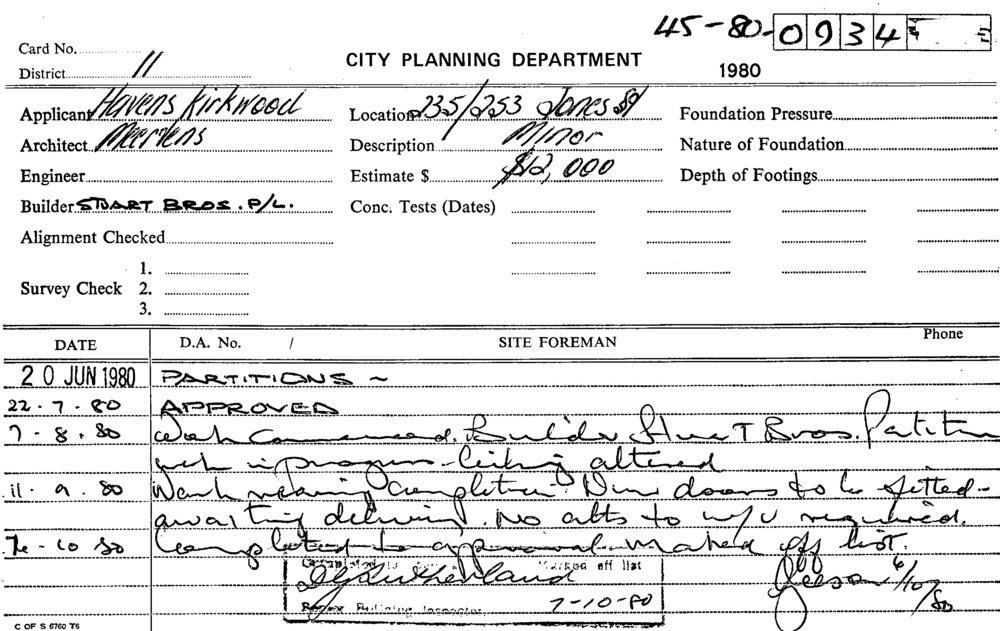 45-80-0934
Card No.
District 11
CITY PLANNING DEPARTMENT
1980
Applicant Havens Kirkwood
Location 235/253 Jones St
Foundation Pressure
Architect Meertens
Description Minor
Nature of Foundation
Engineer
Estimate $ $12,000
Depth of Footings
Builder STUART BROS. P/L.
Conc. Tests (Dates)
Alignment Checked
1.
Survey Check 2.
3.
DATE D.A. No. / SITE FOREMAN Phone
20 JUN 1980 PARTITIONS ~
22.7.80 APPROVED
7-8.80 Work Commenced. Builder Stuart Bros. Partition
work in progress - ceiling altered
11.9.80 Work nearing completion. New doors to be fitted -
awaiting delivery. No alts to w/u required.
7-10 80 Completed to approval. Marked off list.
Completed to Marked off list
Sutherland 6/10/80
Building Inspector 7-10-80
C OF S 6760 T6